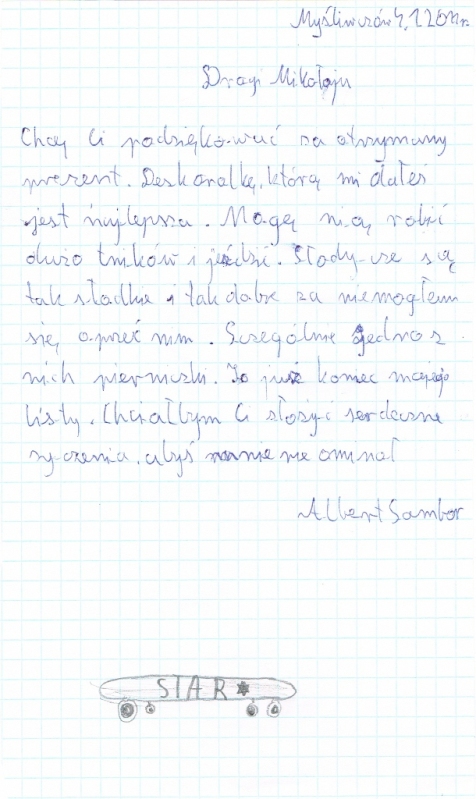 Drogi Mikołaju
Chcę Ci podziękować za otrzymany
prezent. Deskorolkę, którą mi dałeś
jest najlepsza. Mogę nią robić
dużo trików i jeździć. Słodycze są
tak słodkie i tak dobre za niemogłem
się oprzeć nim. Sczególnie jedno z
nich pierniczki. To już koniec mojego
listy. Chciałbym Ci złożyć serdeczne
rzyczenia, abyś mnie nie ominął
Albert Sambor
STAR